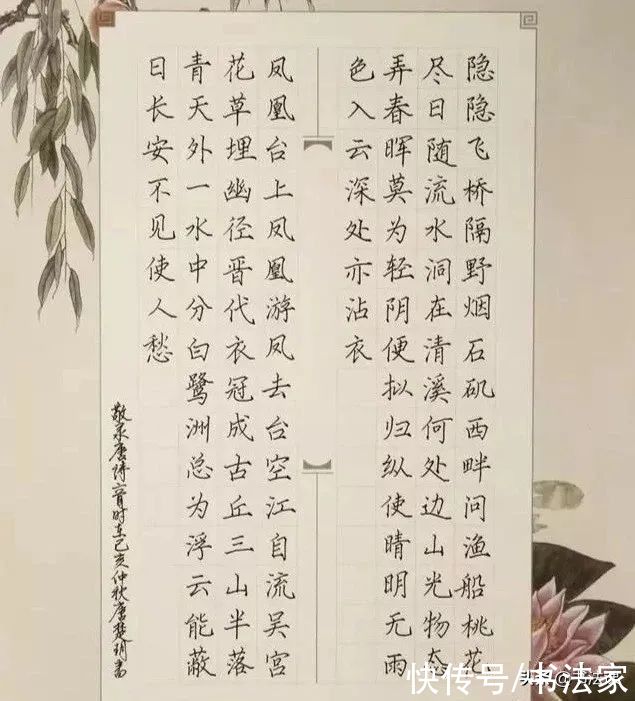 隐隐飞桥隔野烟石矶西畔问渔船桃花
尽日随流水洞在清溪何处边山光物态
弄春晖莫为轻阴便拟归纵使晴明无雨
色入云深处亦沾衣
凤凰台上凤凰游凤去台空江自流吴宫
花草埋幽径晋代衣冠成古丘三山半落
青天外一水中分白鹭洲总为浮云能蔽
日长安不见使人愁
敬录唐诗二首时在己亥仲秋唐楚玥书
快传号/书法家